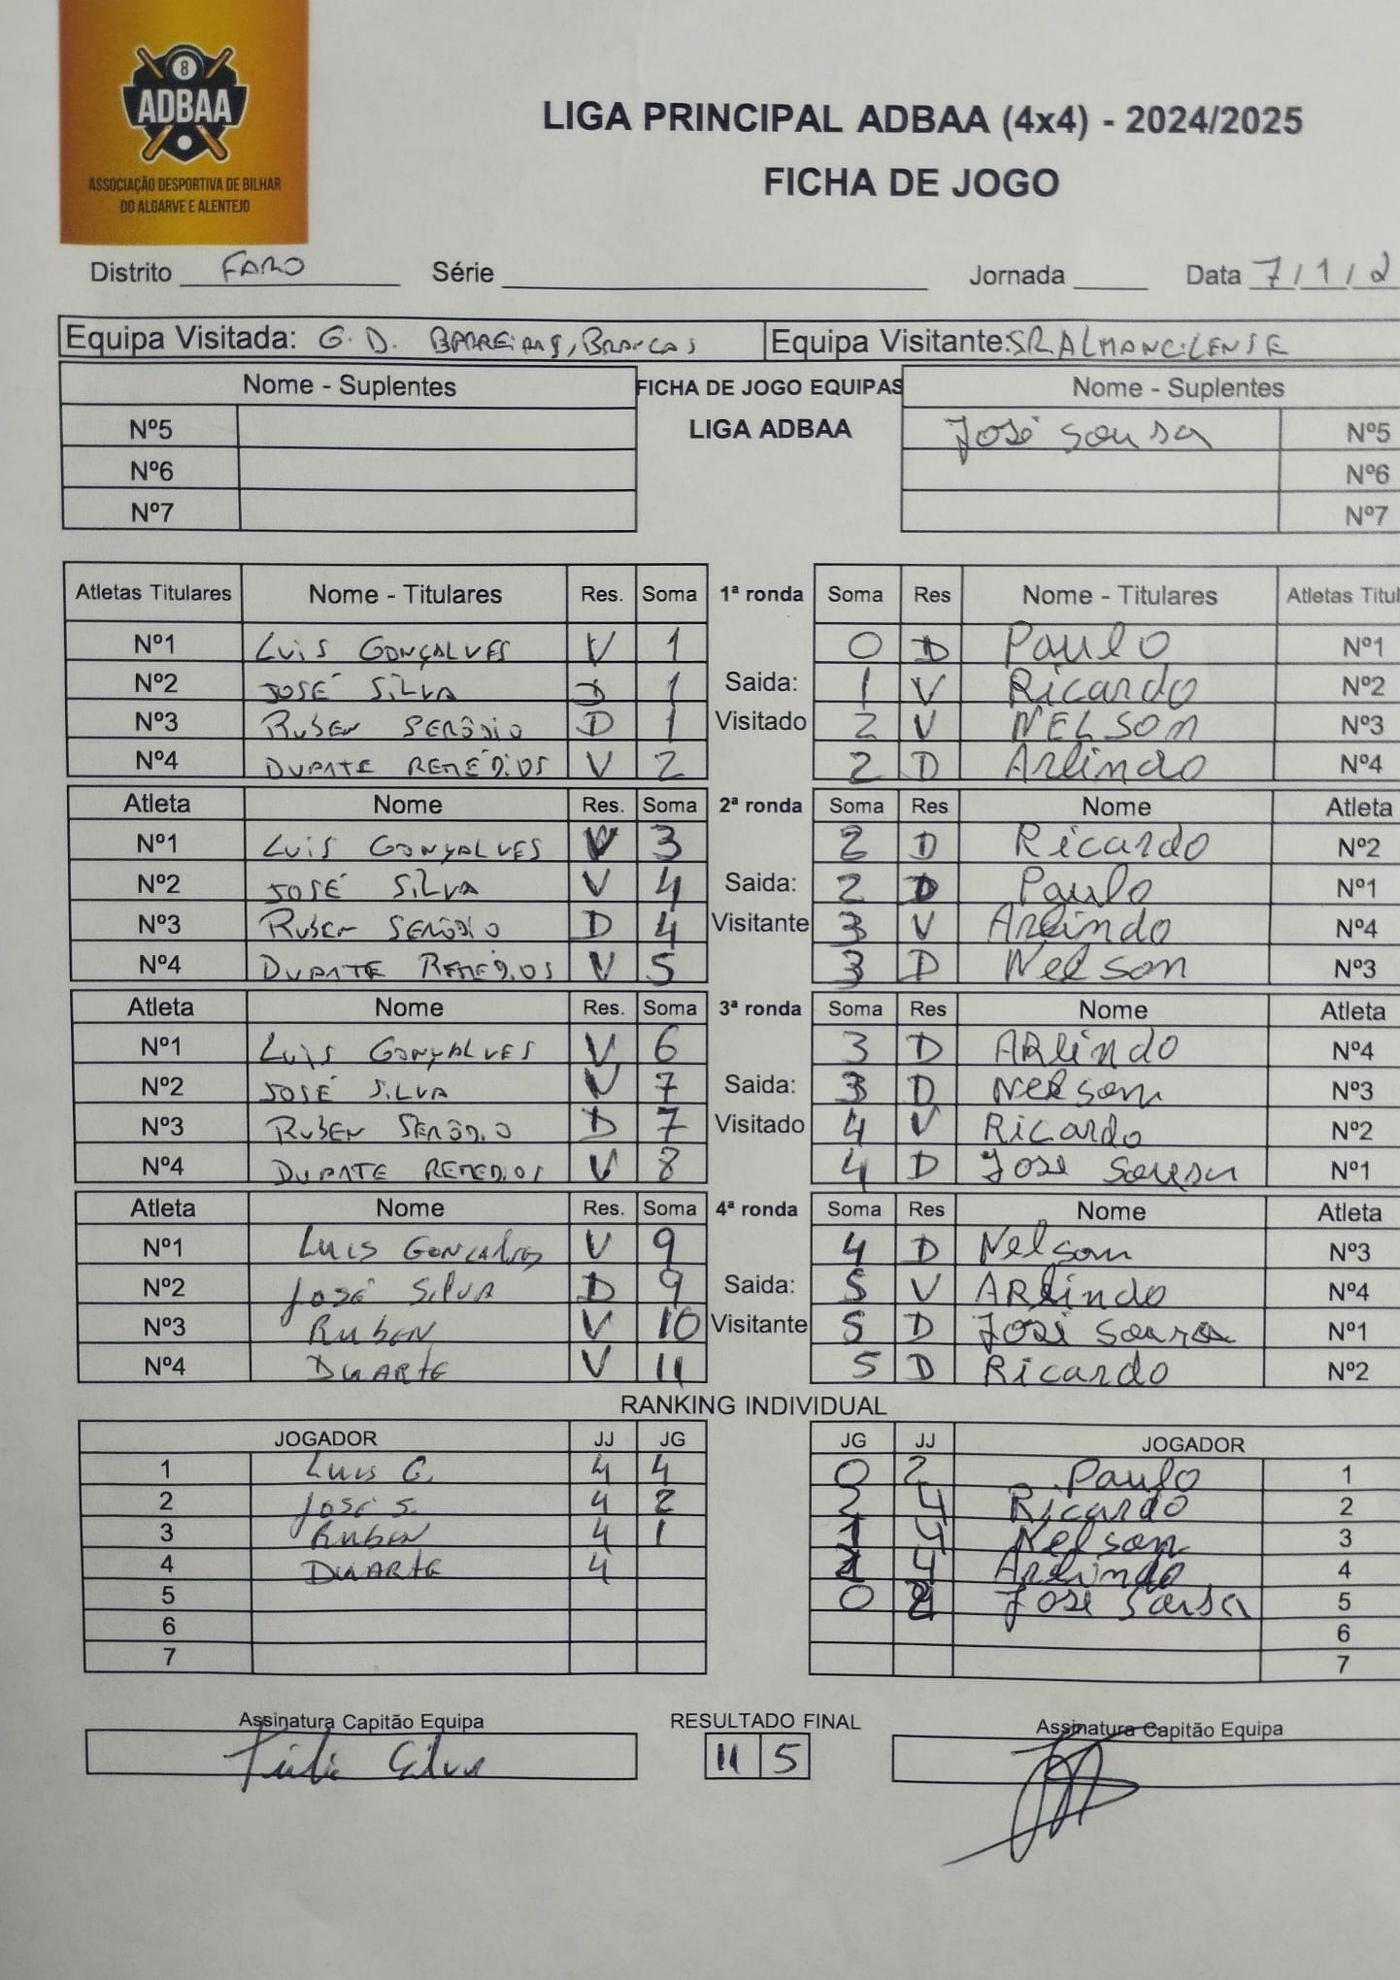 8
ADBAA
ASSOCIAÇÃO DESPORTIVA DE BILHAR
DO ALGARVE E ALENTEJO
LIGA PRINCIPAL ADBAA (4x4) - 2024/2025
FICHA DE JOGO
Distrito FARO Série Jornada Data 7/1/2
Equipa Visitada: G.D. BARREIRAS, BRANCAS Equipa Visitante: SR ALMANCILENSE
Nome - Suplentes FICHA DE JOGO EQUIPAS Nome - Suplentes
Nº5 LIGA ADBAA José Sousa Nº5
Nº6 Nº6
Nº7 Nº7
Atletas Titulares Nome - Titulares Res. Soma 1ª ronda Soma Res Nome - Titulares Atletas Titul
Nº1 LUIS GONÇALVES V 1 0 D Paulo Nº1
Nº2 JOSÉ SILVA D 1 Saida: 1 V Ricardo Nº2
Nº3 RUBEN SERÔDIO D 1 Visitado 2 V NELSON Nº3
Nº4 DUARTE REMÉDIOS V 2 2 D Arlindo Nº4
Atleta Nome Res. Soma 2ª ronda Soma Res Nome Atleta
Nº1 LUIS GONÇALVES V 3 2 D Ricardo Nº2
Nº2 JOSÉ SILVA V 4 Saida: 2 D Paulo Nº1
Nº3 RUBEN SERÔDIO D 4 Visitante 3 V Arlindo Nº4
Nº4 DUARTE REMÉDIOS V 5 3 D Nelson Nº3
Atleta Nome Res. Soma 3ª ronda Soma Res Nome Atleta
Nº1 LUIS GONÇALVES V 6 3 D ARlindo Nº4
Nº2 JOSÉ SILVA V 7 Saida: 3 D Nelson Nº3
Nº3 RUBEN SERÔDIO D 7 Visitado 4 V Ricardo Nº2
Nº4 DUARTE REMEDIOS V 8 4 D José Sousa Nº1
Atleta Nome Res. Soma 4ª ronda Soma Res Nome Atleta
Nº1 LUIS GONCALVES V 9 4 D Nelson Nº3
Nº2 José SILVA D 9 Saida: 5 V ARlindo Nº4
Nº3 RUBEN V 10 Visitante 5 D José Sousa Nº1
Nº4 DUARTE V 11 5 D Ricardo Nº2
RANKING INDIVIDUAL
JOGADOR JJ JG JG JJ JOGADOR
1 Luis G. 4 4 0 2 Paulo 1
2 José S. 4 2 2 4 Ricardo 2
3 RUBEN 4 1 1 4 Nelson 3
4 DUARTE 4 4 Arlindo 4
5 0 José Sousa 5
6 6
7 7
Assinatura Capitão Equipa RESULTADO FINAL Assinatura Capitão Equipa
11 5